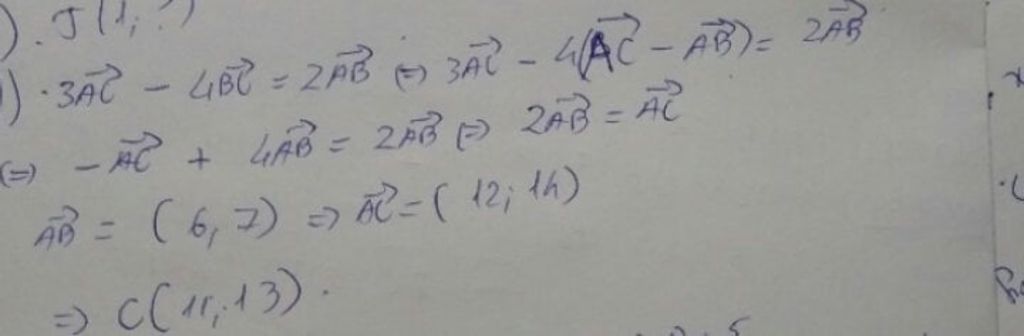 ). J(1; ?)
) · 3\overrightarrow{AC} - 4\overrightarrow{BC} = 2\overrightarrow{AB} (=) 3\overrightarrow{AC} - 4(\overrightarrow{AC} - \overrightarrow{AB}) = 2\overrightarrow{AB}
(=) - \overrightarrow{AC} + 4\overrightarrow{AB} = 2\overrightarrow{AB} (=) 2\overrightarrow{AB} = \overrightarrow{AC}
\overrightarrow{AB} = (6, 7) => \overrightarrow{AC} = (12; 14)
=> C(11; 13).